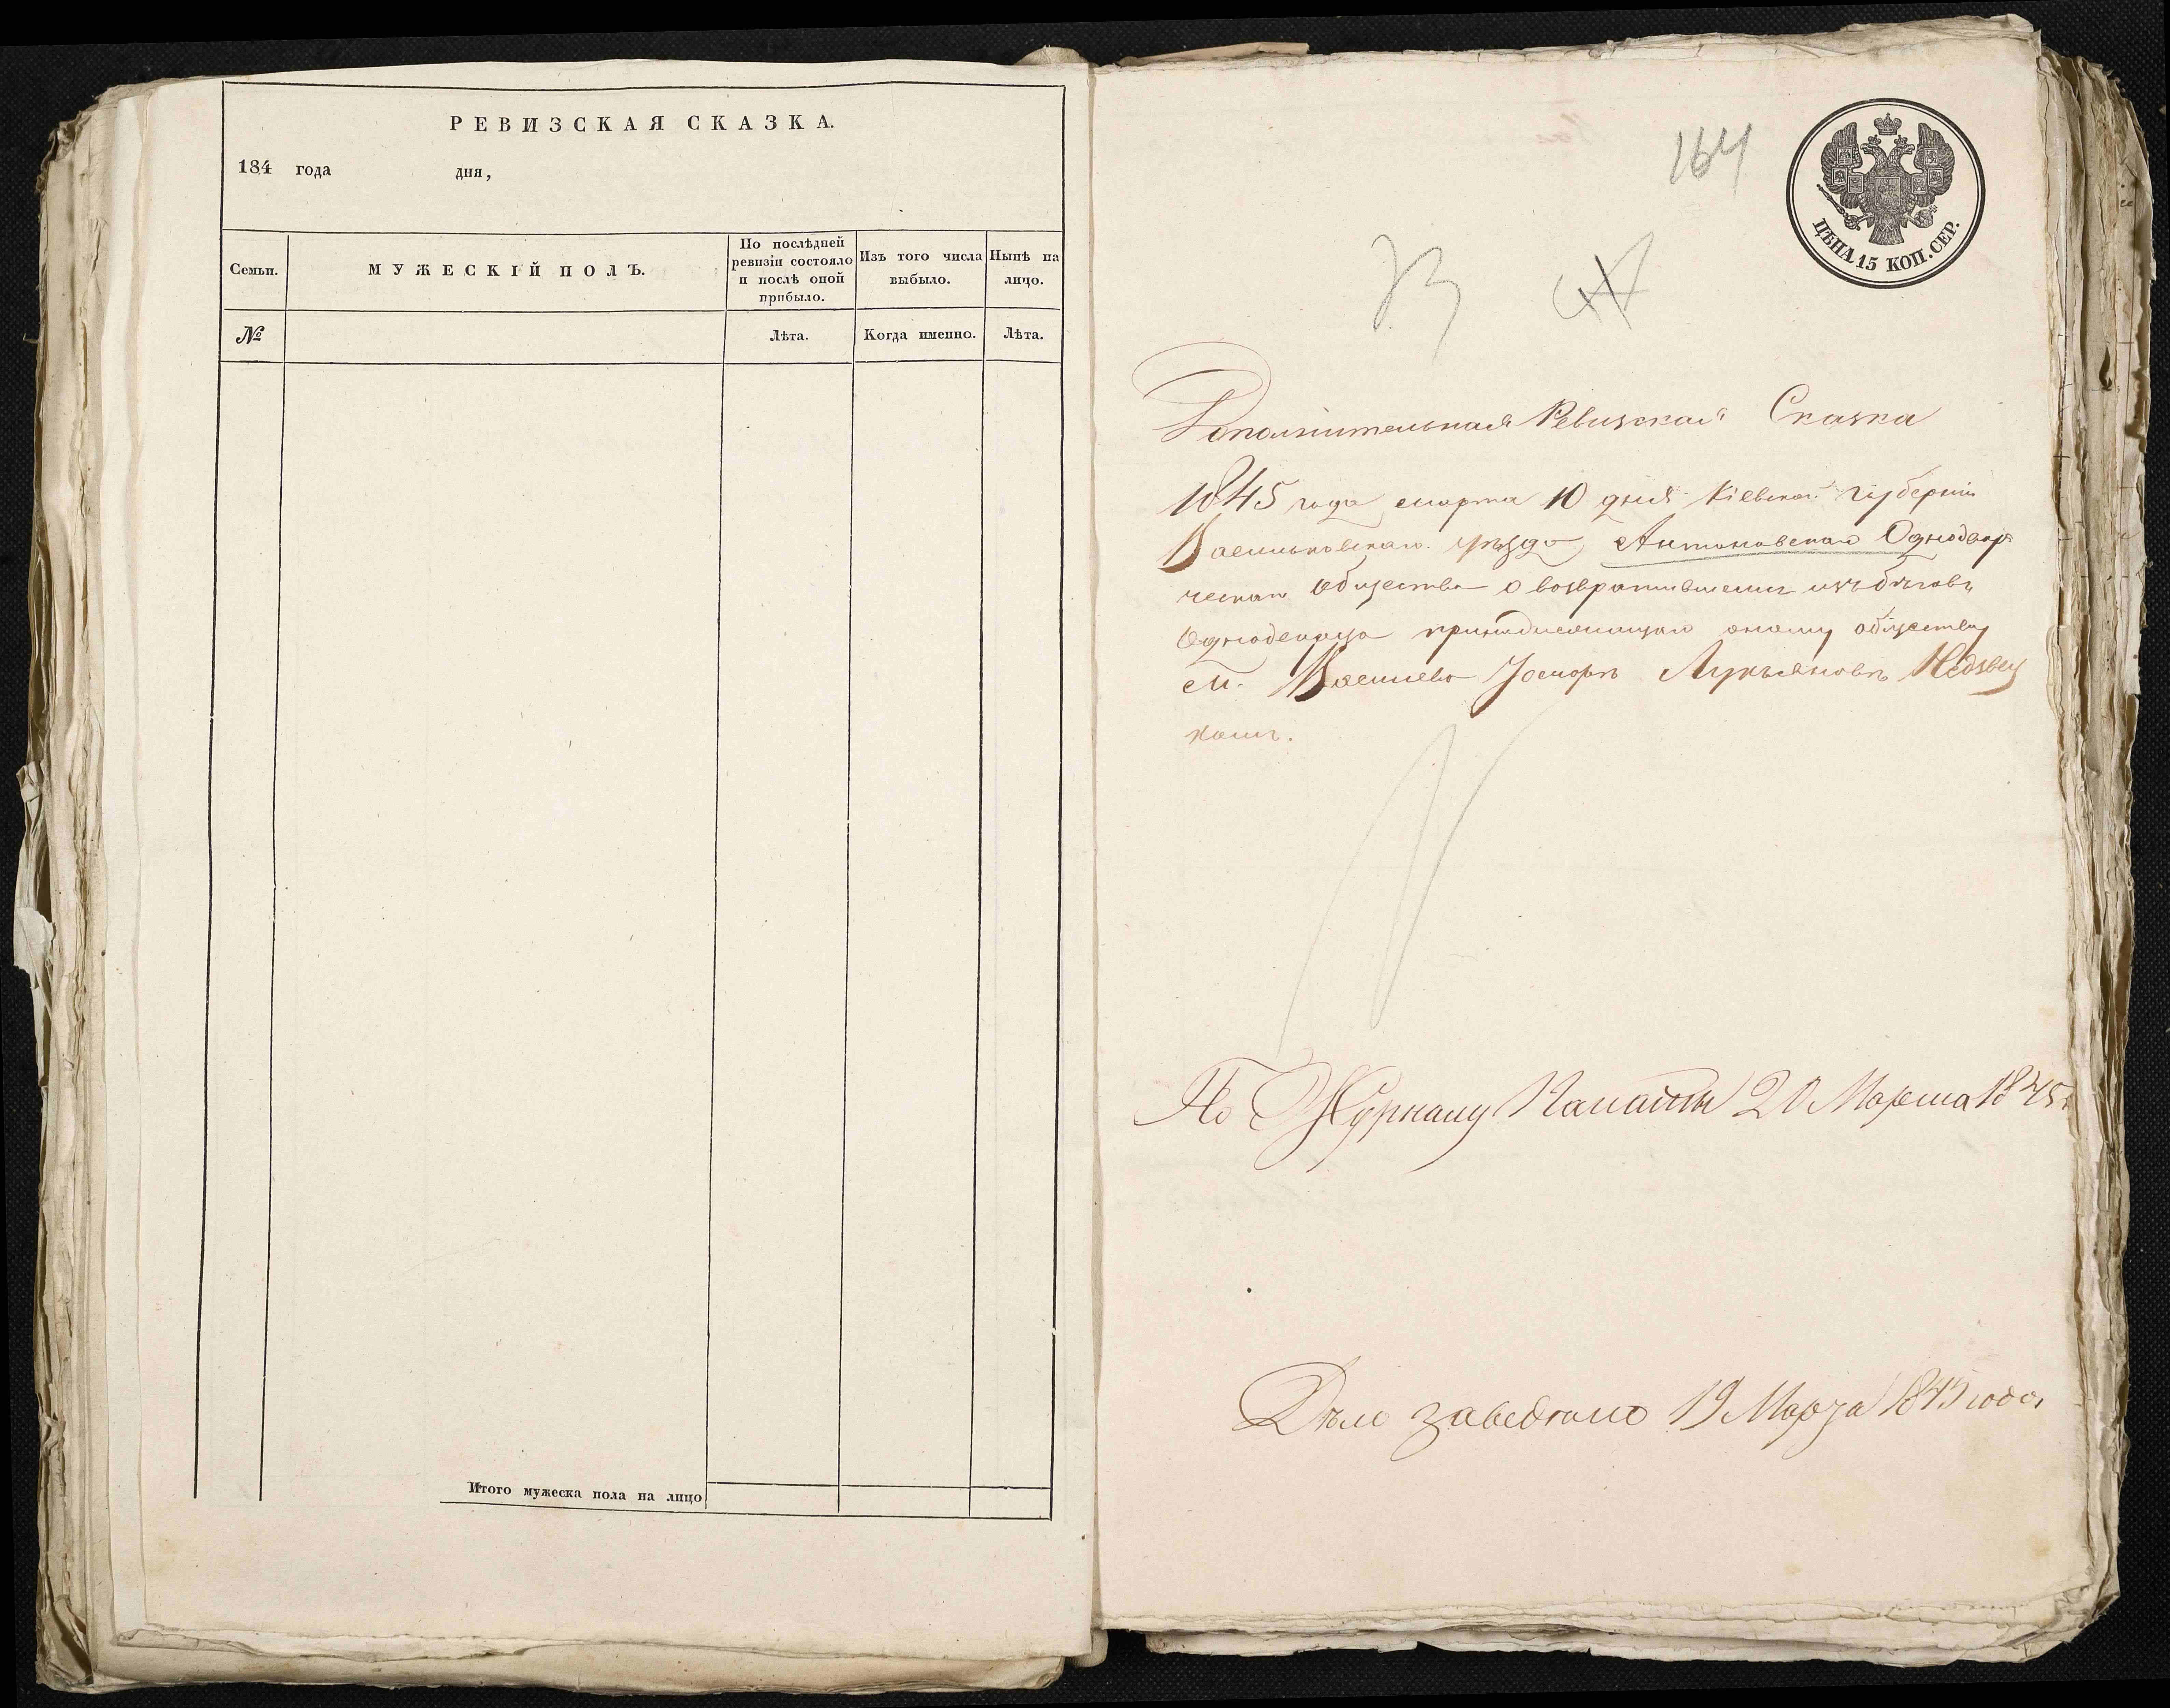 РЕВИЗСКАЯ СКАЗКА.
184 года дня,
Семьи.
МУЖЕСКІЙ ПОЛЪ.
По послѣдней
ревизіи состояло
и послѣ оной
прибыло.
Изъ того числа
выбыло.
Нынѣ на
лицо.
№
Лѣта.
Когда именно.
Лѣта.
Итого мужеска пола на лицо
164
ЦѢНА 15 КОП. СЕР.
Дополнительная Ревизская Сказка
1845 года марта 10 дня Кіевской губерніи
Васильковскаго уѣзда Антоновскаго Однодвор
ческаго общества о возвратившемся изъ бѣговъ
Однодворца принадлежащаго оному обществу
м. Лукьяновъ
По Журналу Палаты 20 Марта 1845
Дѣло заведено 19 Марта 1845 года,